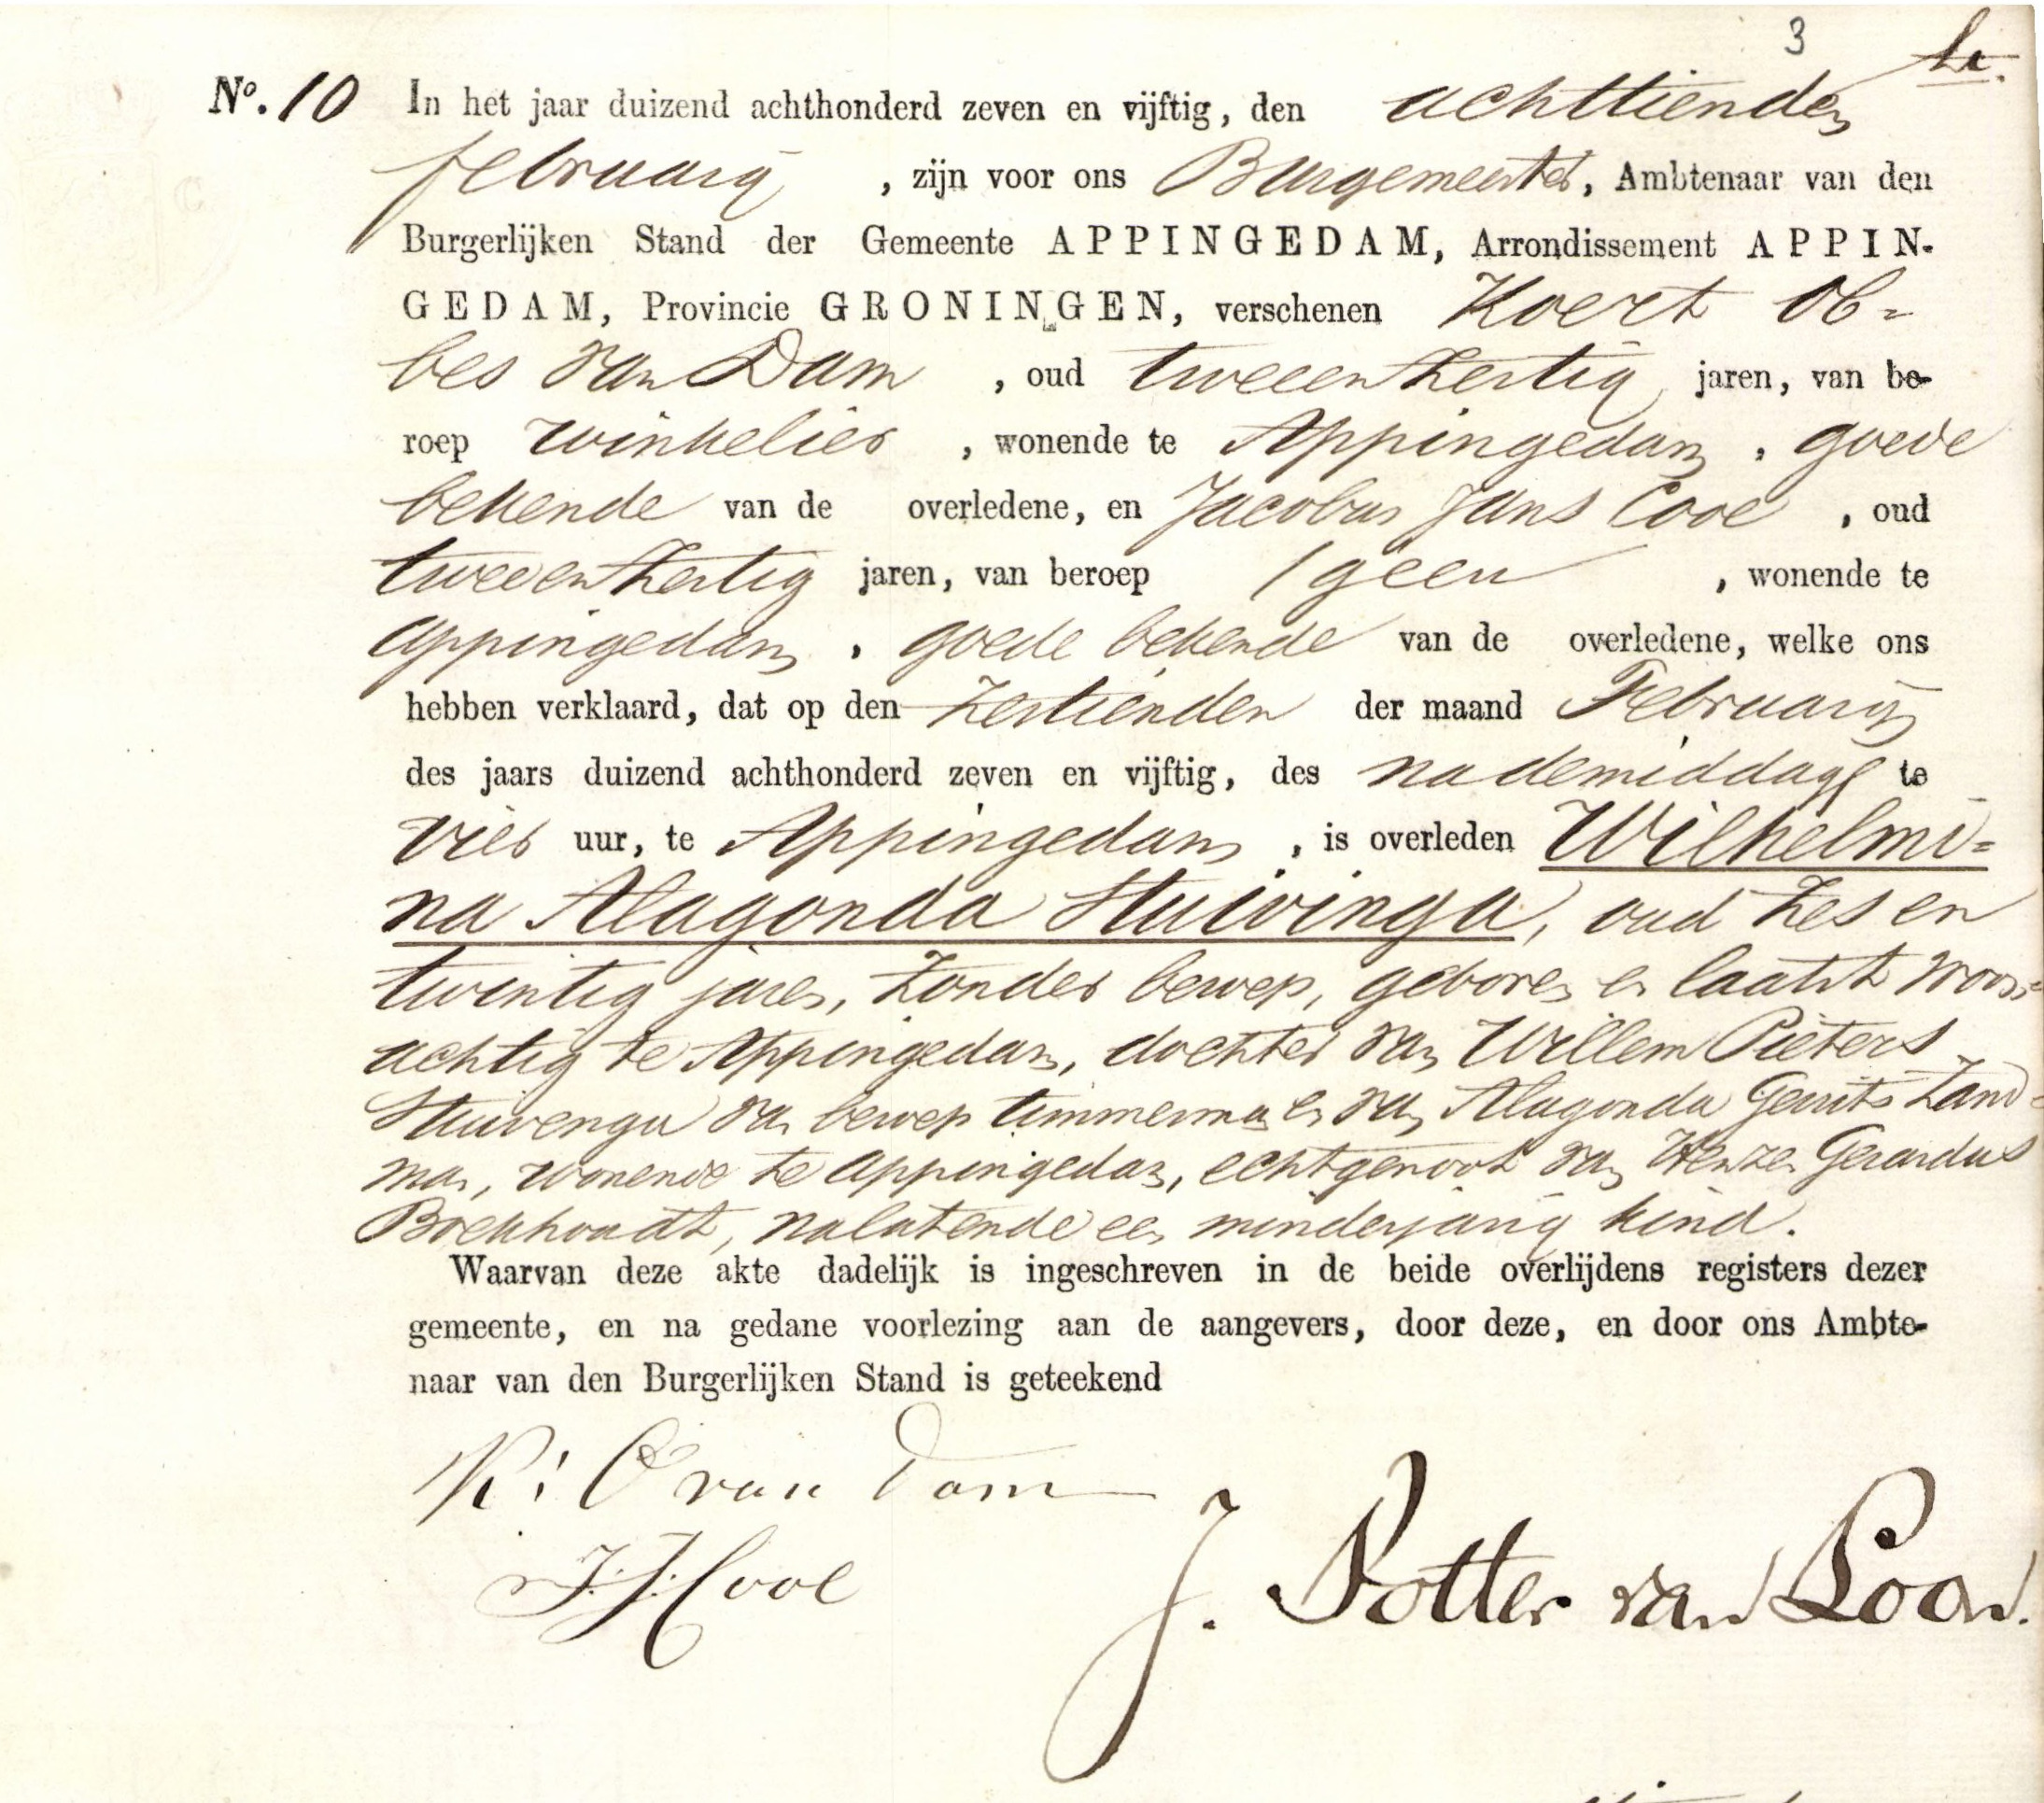 3
No. 10 In het jaar duizend achthonderd zeven en vijftig, den achttienden
februarij, zijn voor ons Burgemeester, Ambtenaar van den
Burgerlijken Stand der Gemeente APPINGEDAM, Arrondissement APPIN-
GEDAM, Provincie GRONINGEN, verschenen Koert Ob-
bes van Dam, oud tweeenthertig jaren, van be-
roep winkelier, wonende te Appingedam, goede
bekende van de overledene, en Jacobus Jans Cool, oud
tweeenthertig jaren, van beroep geen, wonende te
Appingedam, goede bekende van de overledene, welke ons
hebben verklaard, dat op den zestienden der maand Februarij
des jaars duizend achthonderd zeven en vijftig, des nademiddags te
vier uur, te Appingedam, is overleden Wilhelmi-
na Alagonda Stuivinga, oud zes en
twintig jaren, zonder beroep, geboren en laatst woon-
achtig te Appingedam, dochter van Willem Pieters
Stuivenga van beroep timmerman en van Alagonda Gerrits Land-
man, wonende te Appingedam, echtgenoot van Gerardus
Boekhoudt, nalatende een minderjarig kind.
Waarvan deze akte dadelijk is ingeschreven in de beide overlijdens registers dezer
gemeente, en na gedane voorlezing aan de aangevers, door deze, en door ons Ambte-
naar van den Burgerlijken Stand is geteekend
K: O van Dam
J. J. Cool
J. Potter van Loon.